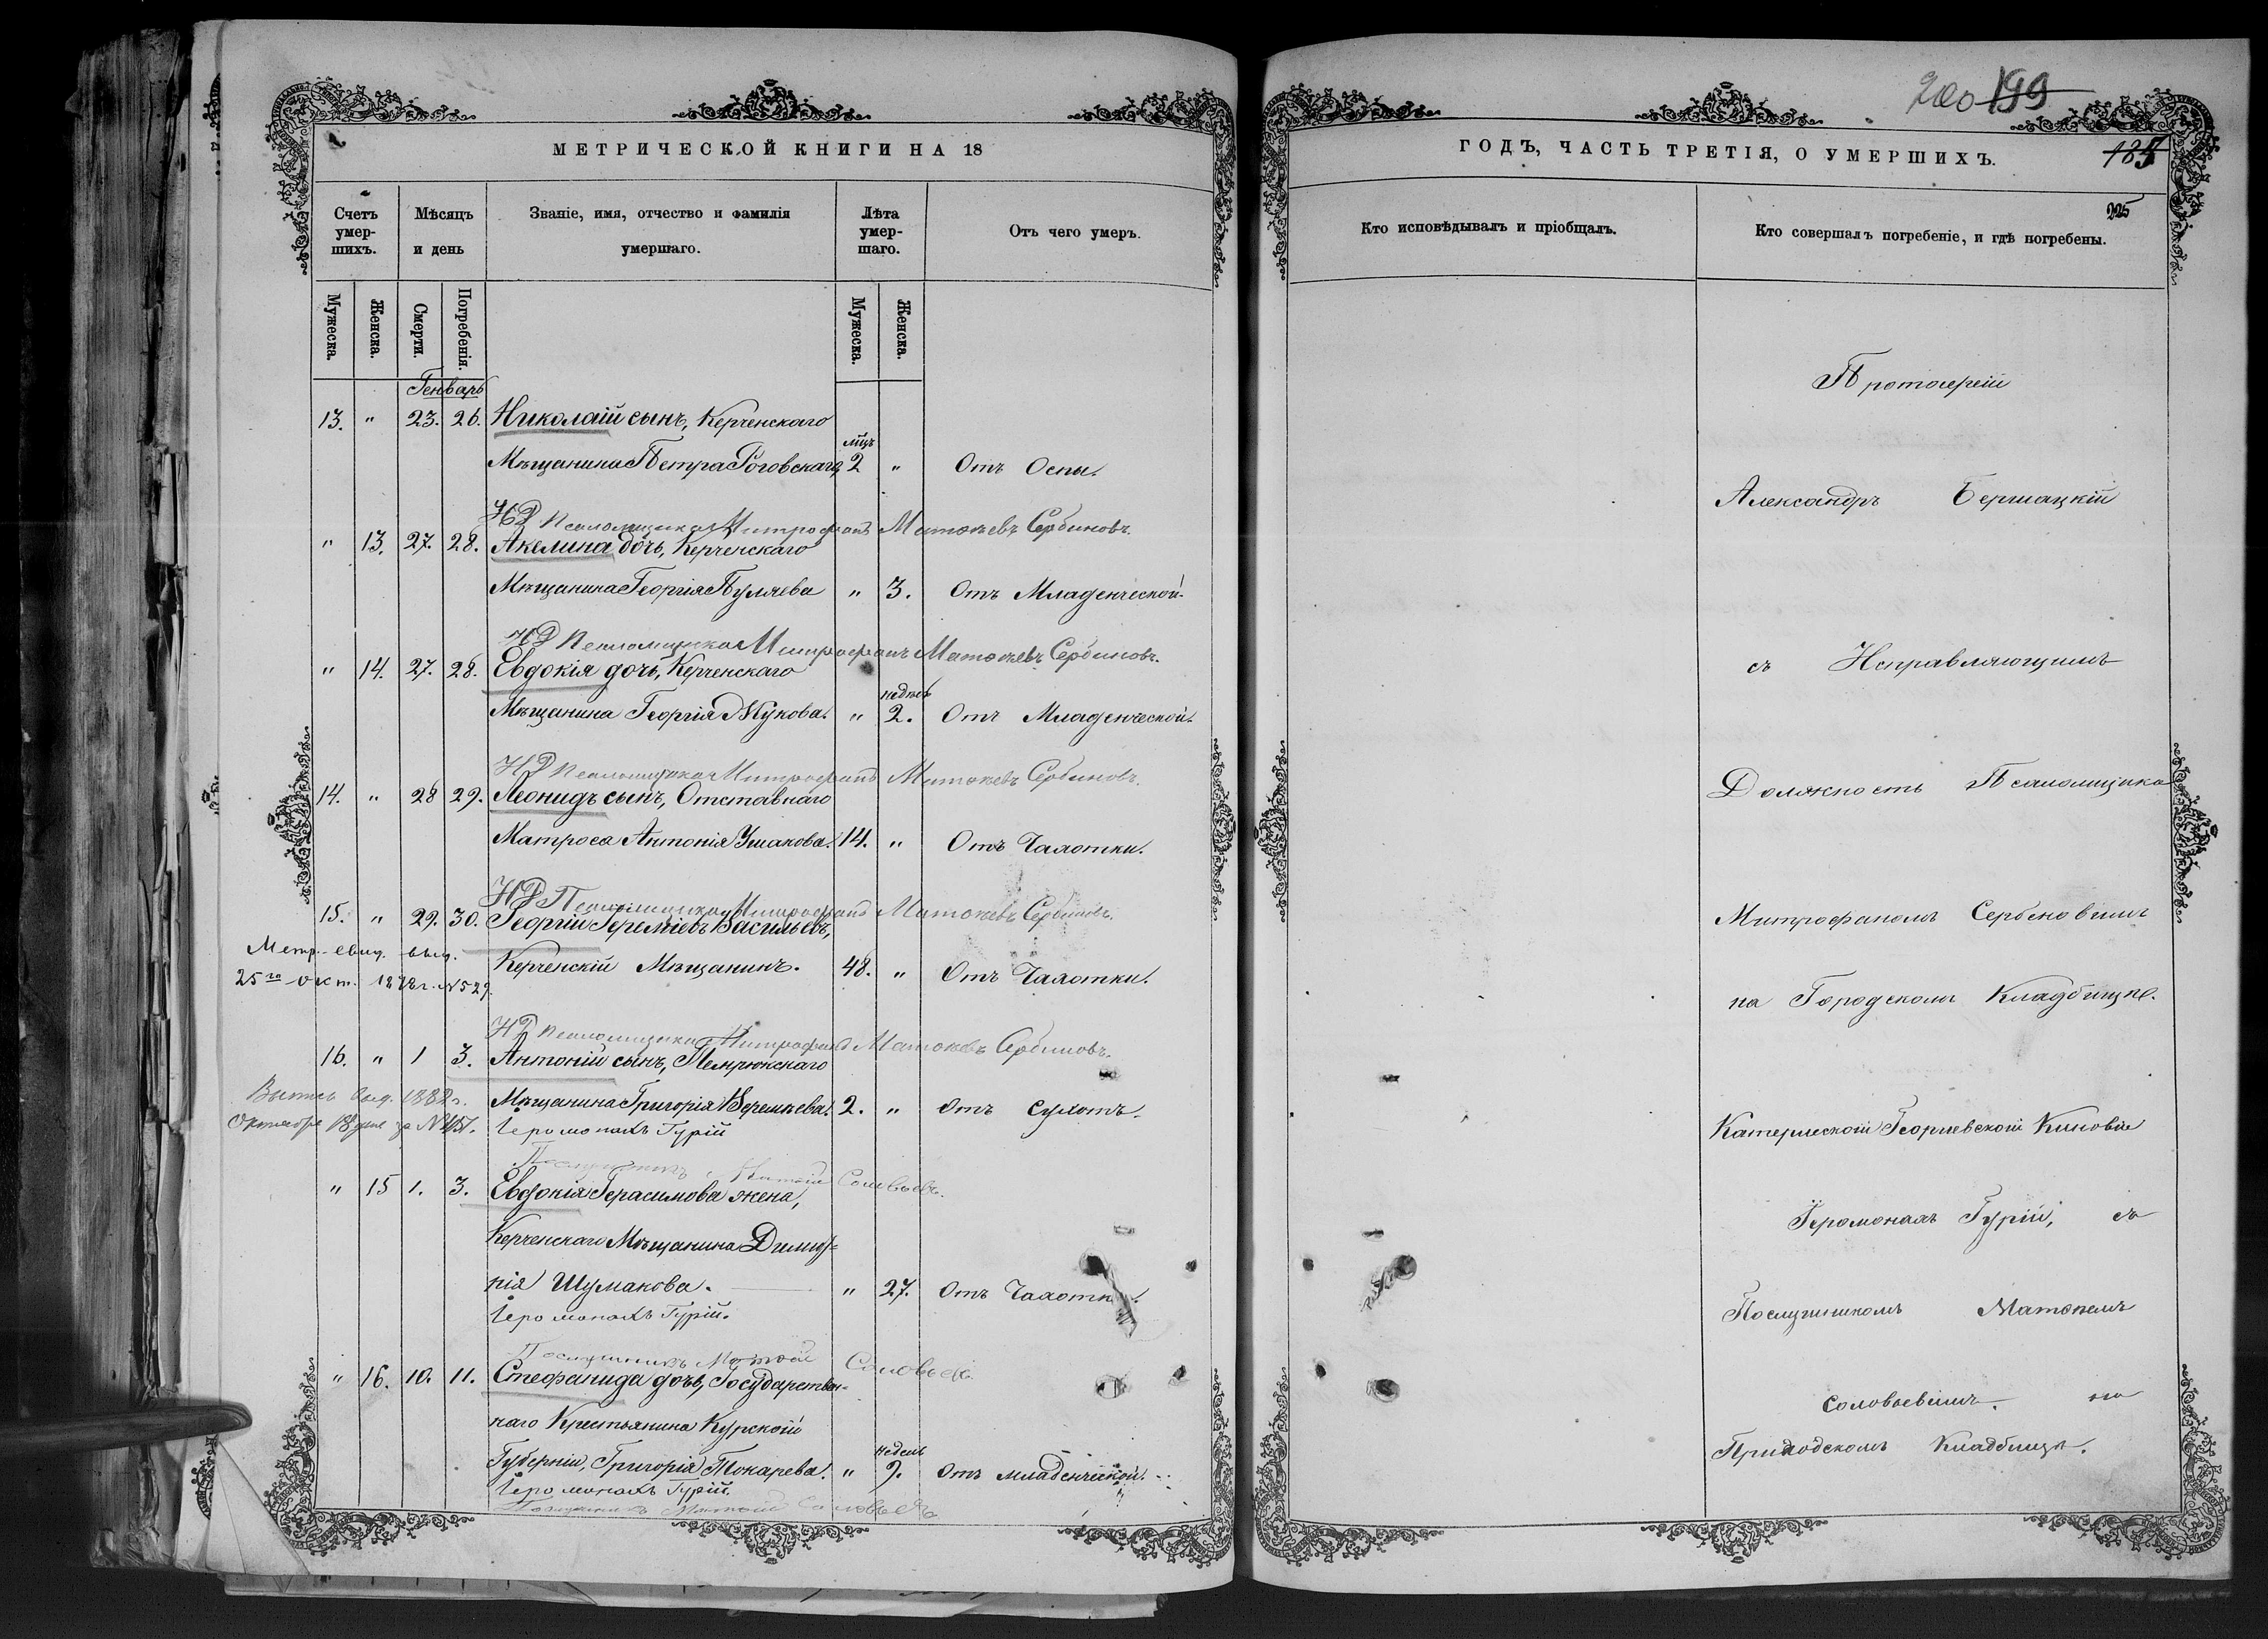 МЕТРИЧЕСКОЙ КНИГИ НА 18
Счетъ умершихъ.
Мѣсяцъ и день
Званіе, имя, отчество и фамилія умершаго.
Лѣта умершаго.
Отъ чего умеръ.
Мужеска.
Женска.
Смерти.
Погребенія.
Мужеска.
Женска.
Генварь
13. " 23. 26. Николай сынъ, Керченскаго
мцъ
Мѣщанина Петра Роговскаго, 2 " Отъ Оспы.
ИД Псаломщика Митрофанъ Матѳеевъ Сербиновъ.
" 13. 27. 28. Акелина дочь, Керченскаго
Мѣщанина Георгія Пуляева " 3. Отъ Младенческой.
ИД Псаломщика Митрофанъ Матѳеевъ Сербиновъ.
" 14. 27. 28. Евдокія дочь, Керченскаго
недѣль
Мѣщанина Георгія Жукова. " 2. Отъ Младенческой.
ИД Псаломщика Митрофанъ Матѳеевъ Сербиновъ.
14. " 28 29. Леонидъ сынъ, Отставнаго
Матроса Антонія Ушакова. 14. " Отъ Чахотки.
ИД Псаломщика Митрофанъ Матѳеевъ Сербиновъ.
15. " 29. 30. Георгій Іереміевъ Васильевъ,
Метр. свид. выд.
Керченскій Мѣщанинъ. 48. " Отъ Чахотки.
25го окт. 1878 г. № 529.
ИД Псаломщика Митрофанъ Матѳеевъ Сербиновъ.
16. " 1 3. Антоній сынъ, Темрюкскаго
Выпись выд. 1882 г.
Мѣщанина Григорія 2. " Отъ Сухотъ.
Октября 18 дня за №
Іеромонахъ Гурій
Послушникъ Матѳій Соловьевъ.
" 15 1. 3. Евдокія Герасимова жена,
Керченскаго Мѣщанина Димит-
рія Шумакова. " 27. Отъ Чахотки.
Іеромонахъ Гурій.
Послушникъ Матѳій Соловьевъ.
" 16. 10. 11. Стефанида дочь, Государствен-
наго Крестьянина Курской
недель
Губерніи, Григорія Токарева. " 9. Отъ младенческой.
Іеромонахъ Гурій.
Послушникъ Матѳій Соловьевъ
200 199
ГОДЪ, ЧАСТЬ ТРЕТІЯ, О УМЕРШИХЪ.
185
225
Кто исповѣдывалъ и пріобщалъ.
Кто совершалъ погребеніе, и гдѣ погребены.
Протоіерей
Александръ Бершацкій
съ Исправляющимъ
Должность Псаломщика
Митрофаномъ Сербиновымъ
на Городскомъ Кладбищѣ.
Катерлесской Георгіевской Киновіи
Іеромонахъ Гурій, съ
Послушникомъ Матѳеемъ
Соловьевымъ. на
Приходскомъ Кладбищѣ.